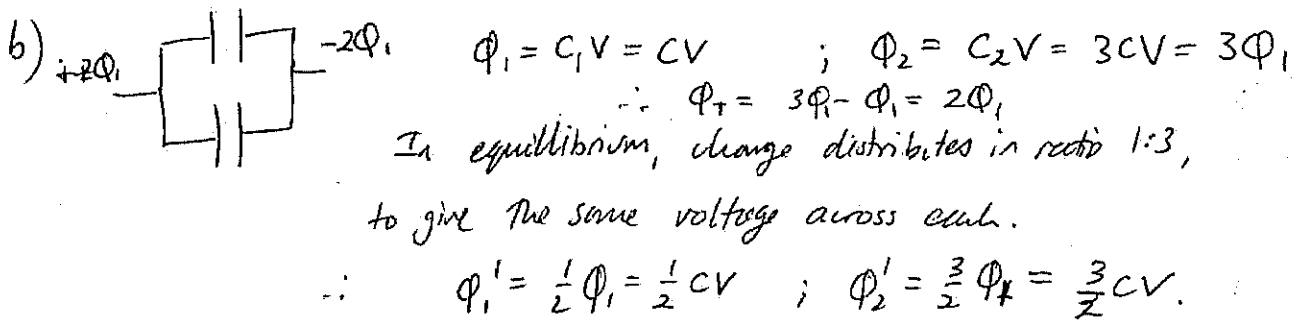 b) +2Q₁ -2Q₁ Q₁ = C₁V = CV ; Q₂ = C₂V = 3CV = 3Q₁
∴ Q_T = 3Q₁ - Q₁ = 2Q₁
In equillibrium, charge distributes in ratio 1:3,
to give the same voltage across each.
∴ Q₁' = ½ Q₁ = ½ CV ; Q₂' = 3/2 Q₁ = 3/2 CV.